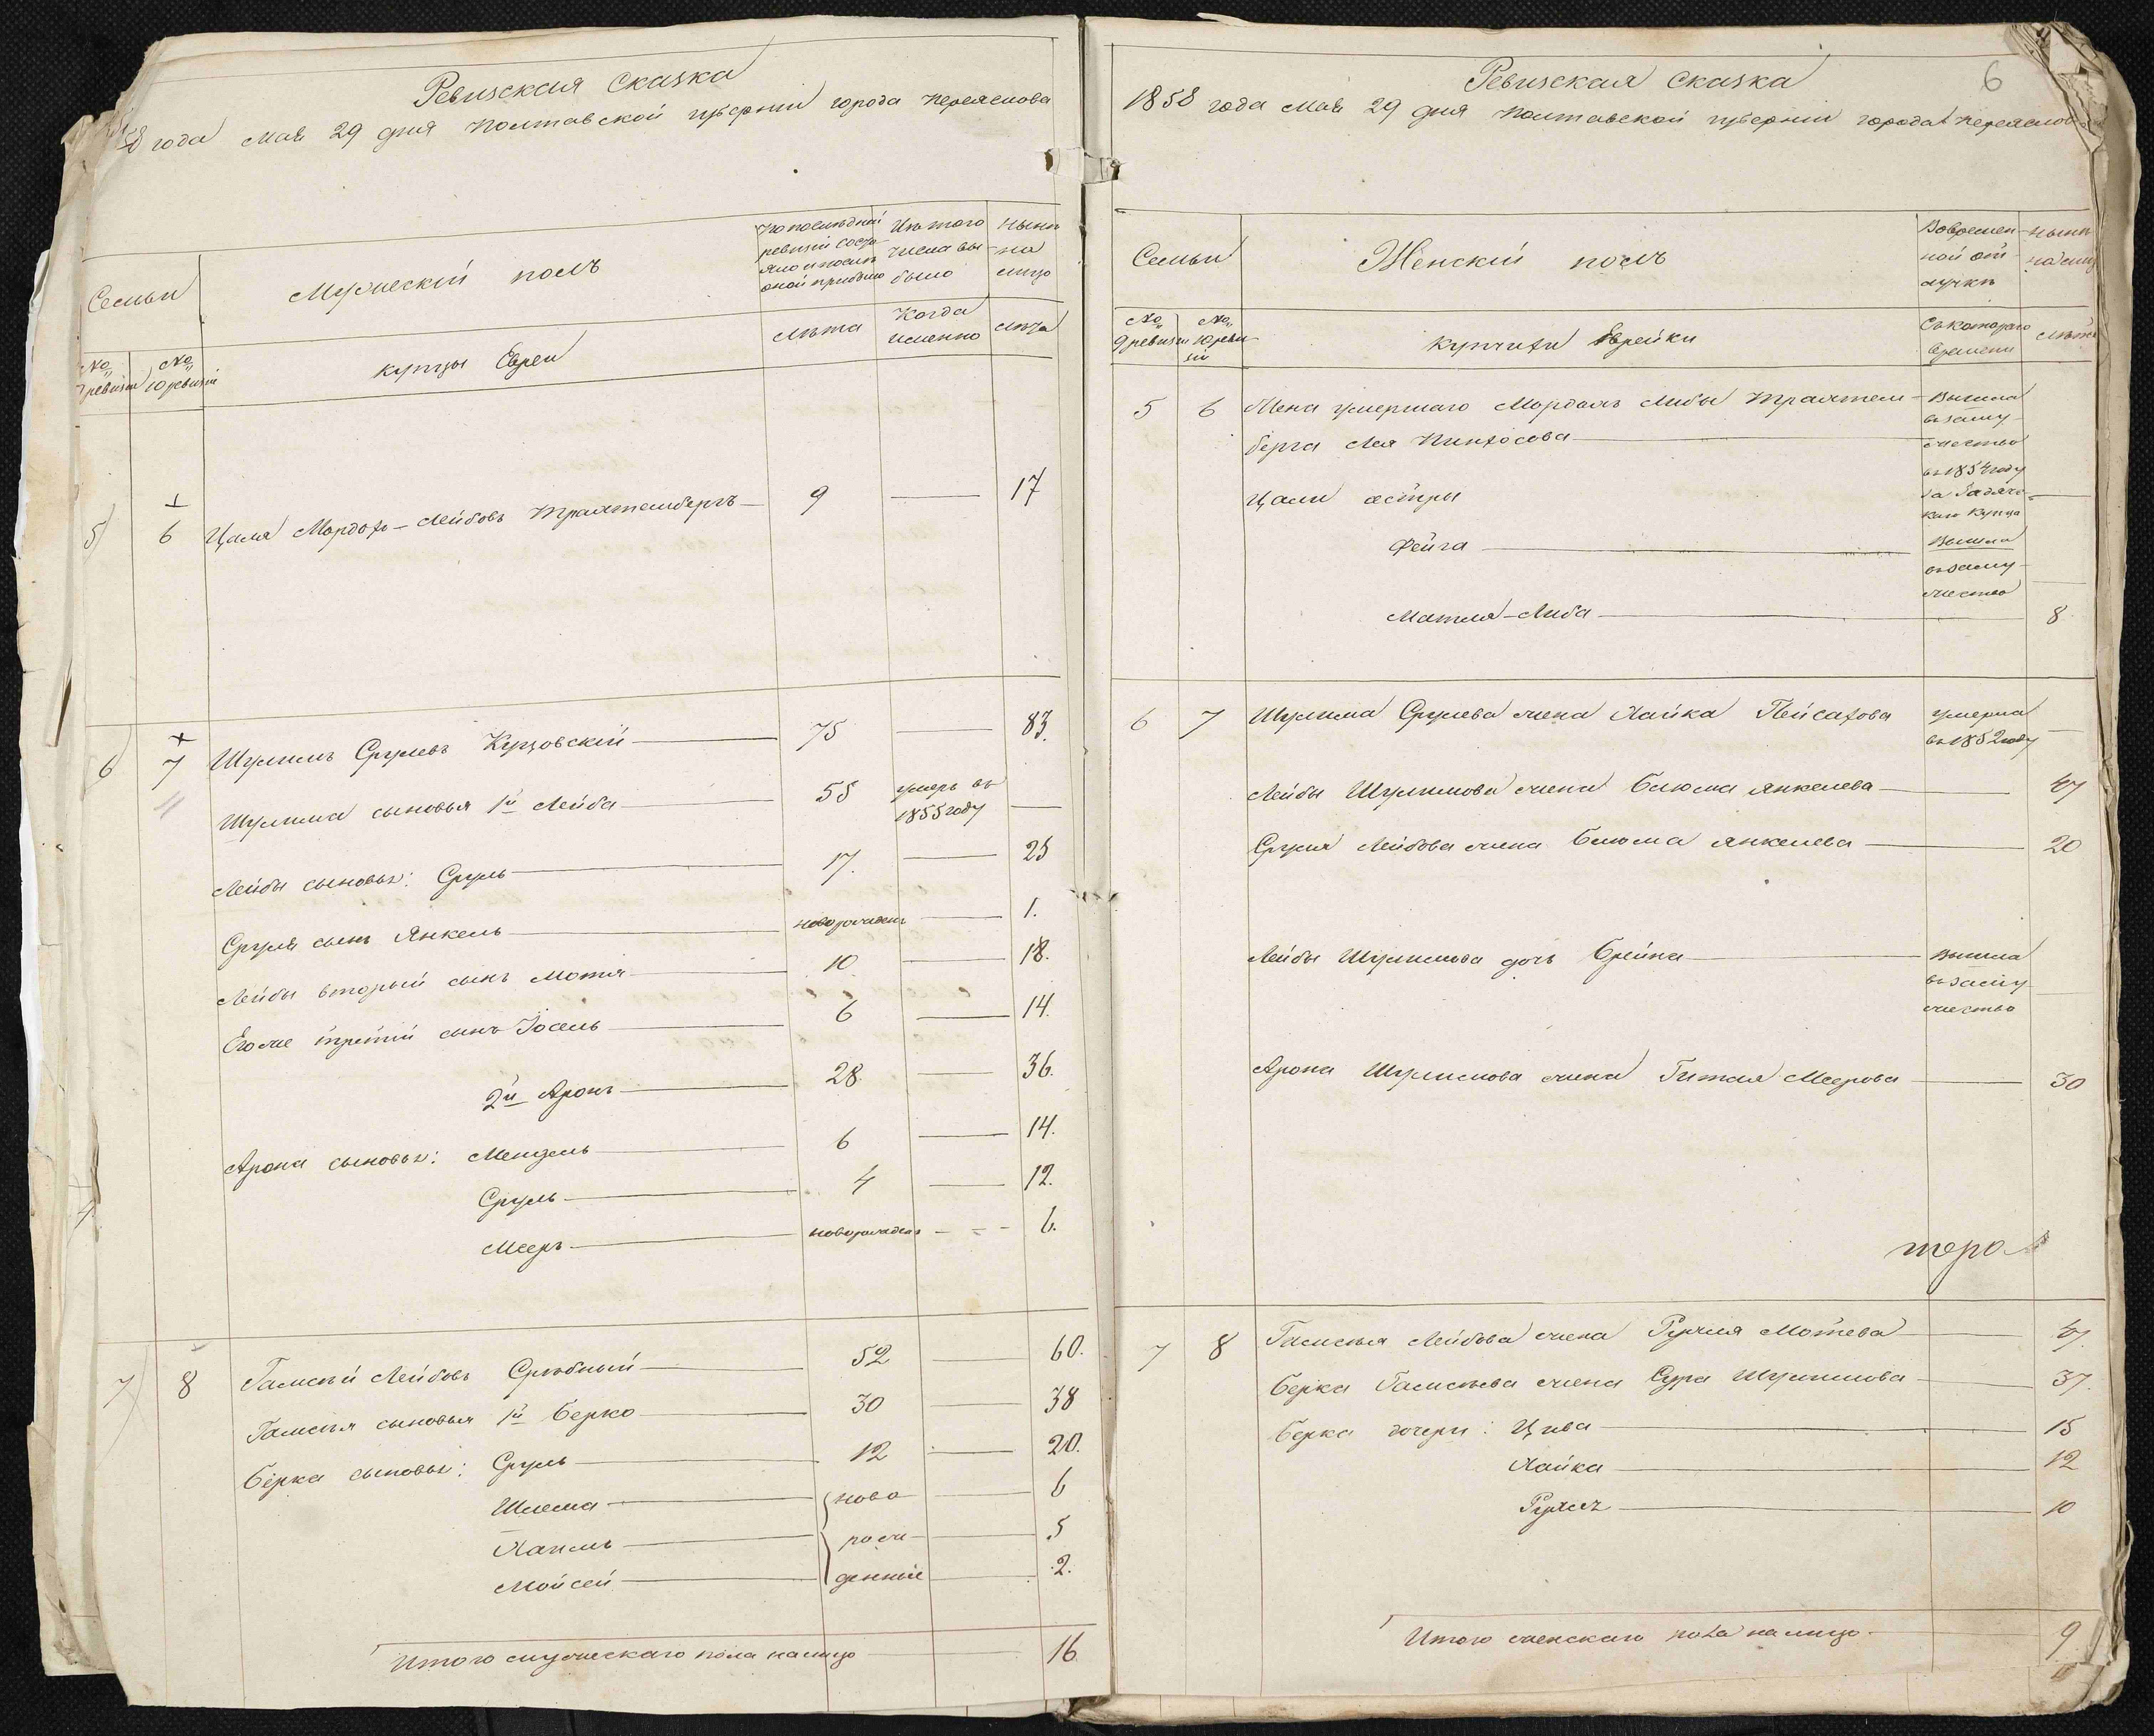 Ревизская Сказка
58 года Мая 29 дня Полтавской губерніи города Переяслова
Семьи
Мужескій полъ
По последней ревизіи состояло и после оной прибыло
Изъ того числа выбыло
Ныне на лицо
№ 9 ревизіи
№ 10 ревизіи
купцы Евреи
лета
Когда именно
лета
5 6 Цаля Мордохъ-Лейбовъ Трахтембергъ 9 — 17
6 7 Шулимъ Срулевъ 75 — 83.
Шулима сыновья 1й Лейба 55 умеръ въ 1855 году —
Лейбы сыновья: Сруль 17. — 25
Сруля сынъ Янкель новорожденъ — 1.
Лейбы вторый сынъ Мотя 10 — 18.
Егоже третій сынъ Іосель 6 — 14.
2й Аронъ 28 — 36.
Арона сыновья: Мендель 6 — 14.
Сруль 4 — 12.
Мееръ новорожденъ — 6.
7 8 Лейбовъ 52 — 60.
сыновья 1й Берко 30 — 38
Берка сыновья: Сруль 12 — 20.
Шлема ново — 6
Хаимъ рож — 5
Мойсей денные — 2.
Итого мужескаго пола налицо 16
6
Ревизская Сказка
1858 года Мая 29 дня Полтавской губерніи города Переяслова
Семьи
Женскій полъ
Вовременной отлучке
Ныне на лицо
№ 9 ревизіи
№ 10 ревизіи
купчихи Еврейки
Съкотораго времени
лета
5 6 Жена умершаго Мордхъ Либы Трахтем
берга Лея Пинхосова
Вышла взамужество въ 1854 году за Гадячскаго Купца —
Цали сестры
Фейга Вышла взамужество —
Матля-Либа — 8
6 7 Шулима Срулева жена Хайка Пейсахова умерла въ 1852 году —
Лейбы Шулимова жена Блюма Янкелева — 47
Сруля Лейбова жена Блюма Янкелева — 20
Лейбы Шулимова дочь Брейна Вышла взамужество —
Арона Шулимова жена Гитля Меерова — 30
7 8 Лейбова жена Рухля Мотева — 47.
Берка жена Сура Шулимова — 37.
Берка дочери: Цива — 15
Хайка — 12
Рухля — 10
Итого женскаго пола налицо 9